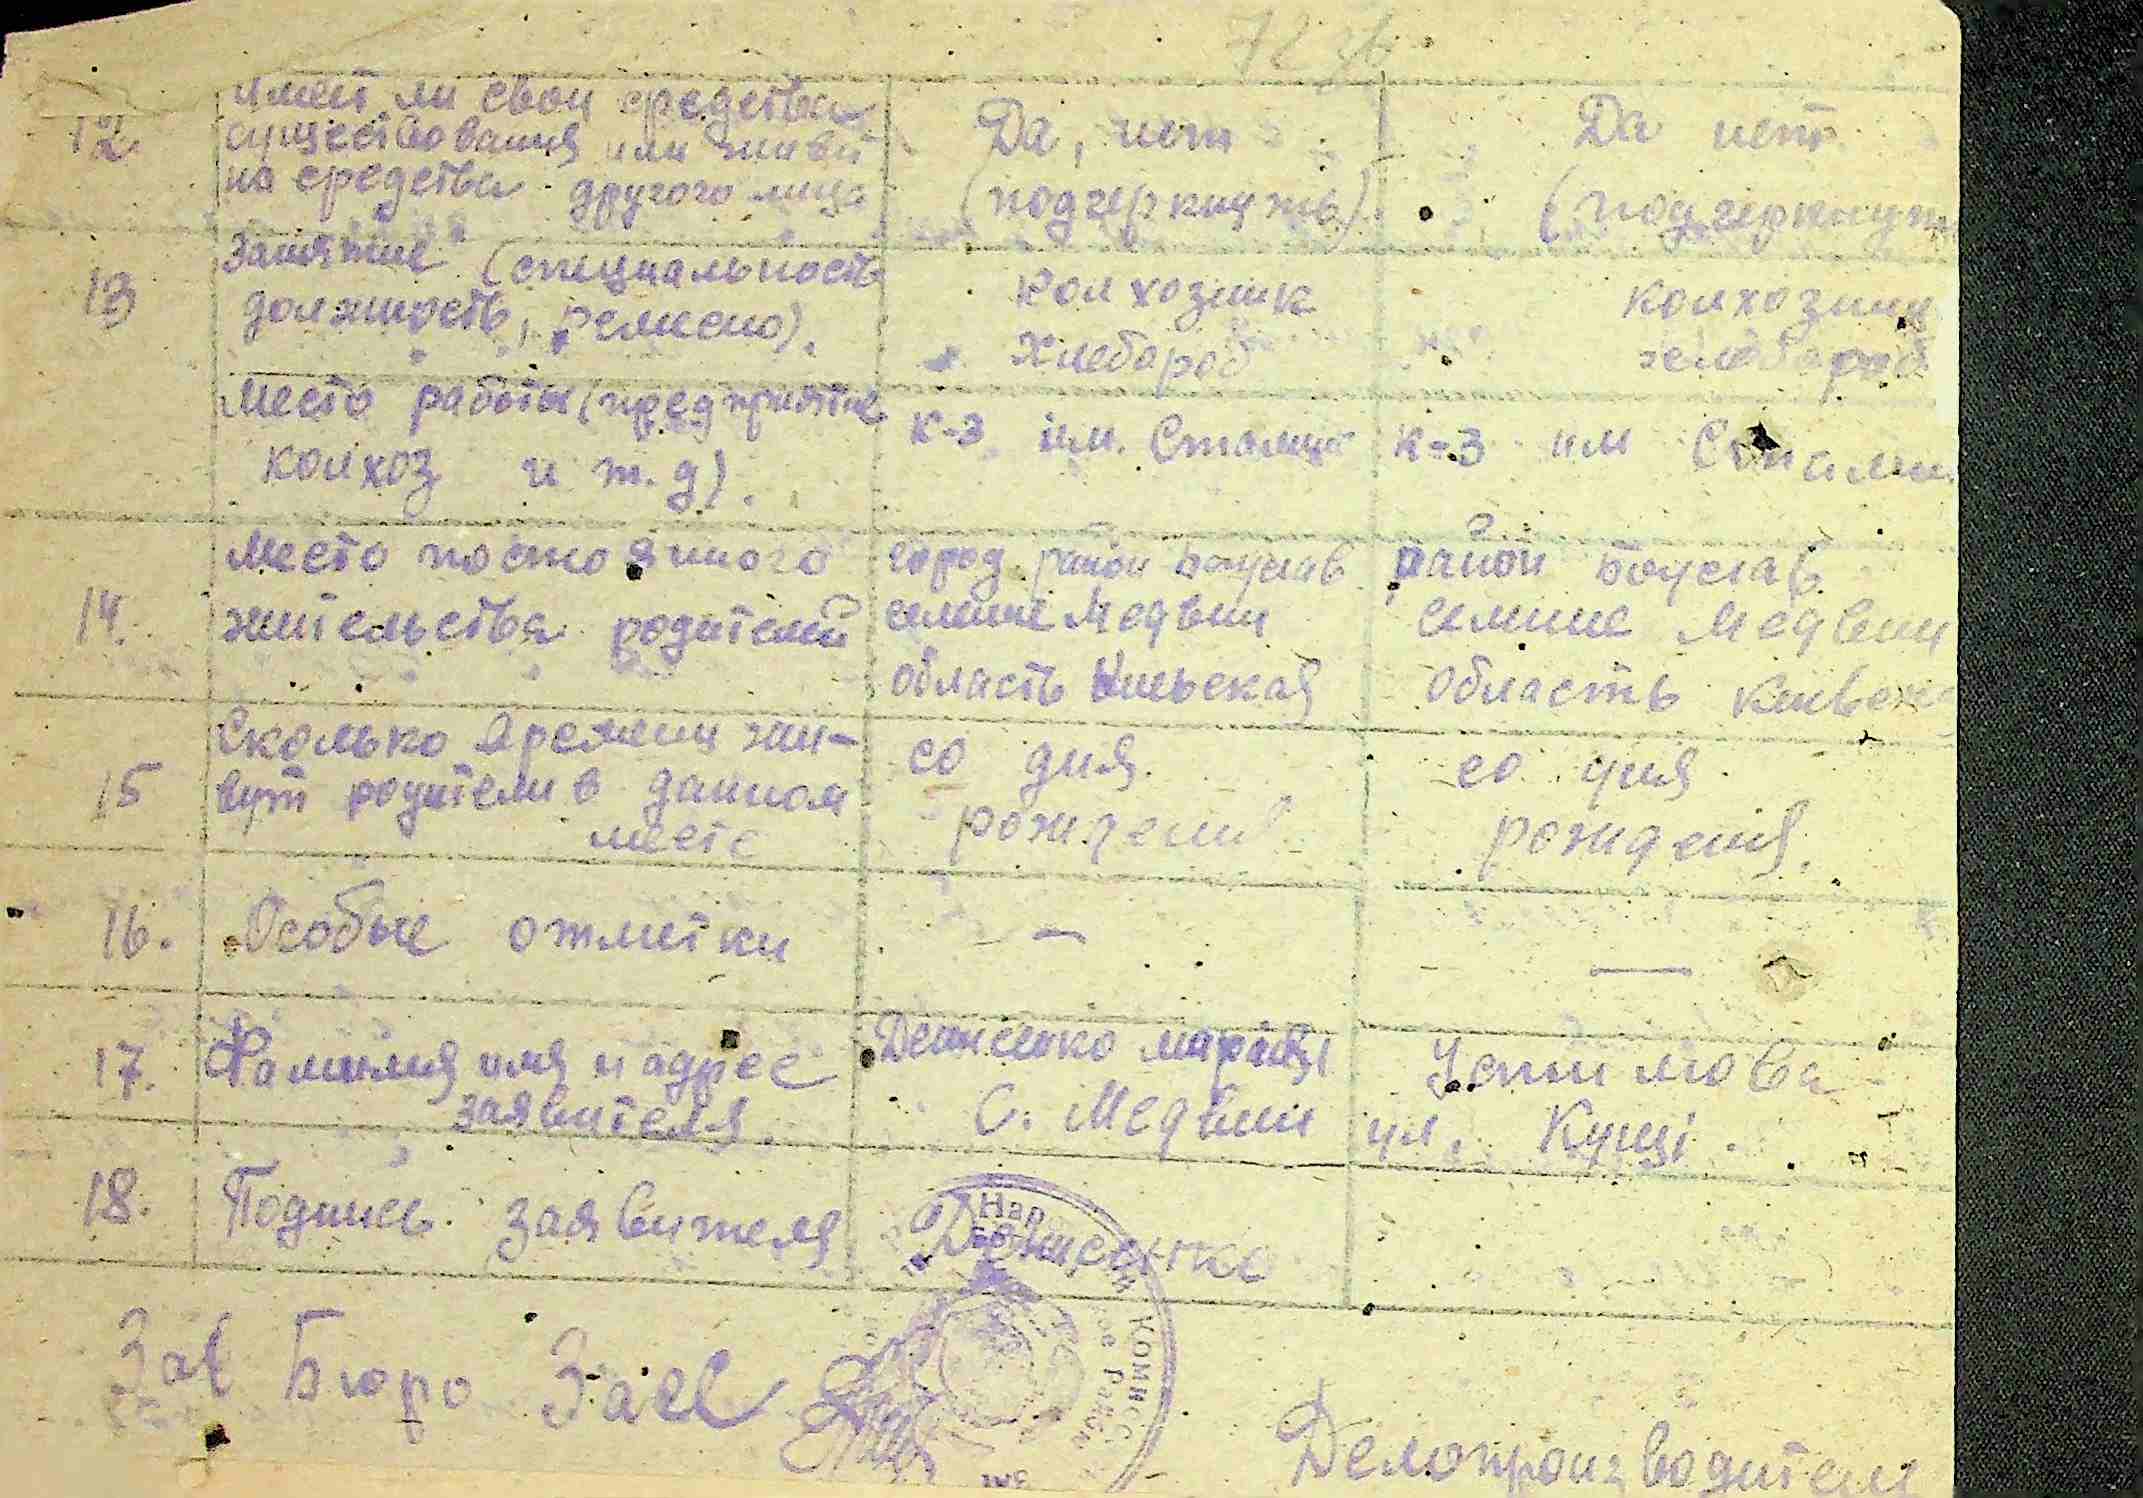 12.
Имеет ли свои средства
существования или живет
на средства другого лица
Да, нет
(подчеркнуть)
Да нет
(подчеркнут
13
Занятие (специальность
должность, ремесно).
колхозник
хлебороб
колхозник
Место работы (предприятие
колхоз и т.д).
к-з им. Сталина
к-з им Сталин
14.
Место постоянного
жительства родителей
город район Богуслав
селение Медвин
область Киевская
район Богуслав
селение Медвин
область Киевск
15
Сколько времени жи-
вут родители в данном
месте
со дня
рождения
со дня
рождения.
16.
Особые отметки
—
—
17.
Фамилия имя и адрес
заявителя.
Денисенко
с. Медвин
Устимова
ул. Кущі
18.
Подпись заявителя
Денисенко
Нар Комисс
Зав Бюро Загс
Делопроизводител